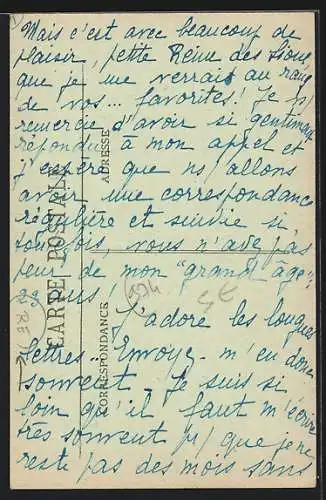 Mais c'est avec beaucoup de
plaisir, petite Reine des Sioux,
que je me verrais au rang
de vos... favorites! Je vs
remercie d'avoir si gentiment
répondu à mon appel et
j'espère que ns/ allons
avoir une correspondance
régulière et suivie si
toutefois, vous n'avez pas
peur de mon "grand âge":
29 ans!
J'adore les longues
lettres... Envoyez-m'en donc
souvent. Je suis si
loin qu'il faut m'écrire
très souvent p/ que je ne
reste pas des mois sans
CARTE POSTALE
CORRESPONDANCE
ADRESSE
4€